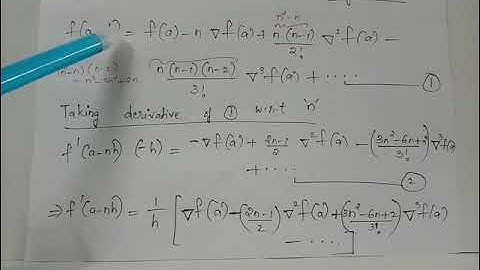 n²-n
f(a = f(a) - n ∇f(a) + n(n-1)/2! ∇²f(a) -
n(n-1)(n-2)/3! ∇³f(a) + ···· ①
Taking derivative of ① w.r.t 'n'
f'(a-nh) (-h) = -∇f(a) + 2n-1/2 ∇²f(a) - (3n²-6n+2/3!) ∇³f(a)
+ ···· ②
⇒ f'(a-nh) = 1/h [∇f(a) - (2n-1/2) ∇²f(a) + (3n²-6n+2/3!) ∇³f(a)
- ····]